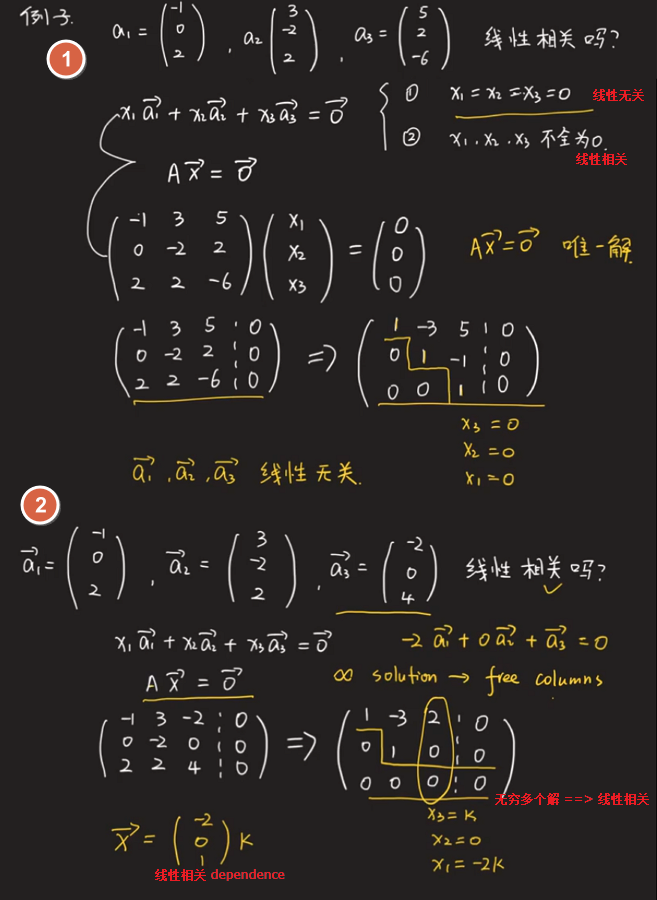 例子.
1
a₁ = (-1 0 2) , a₂ (3 -2 2) , a₃ = (5 2 -6) 线性相关吗?
x₁a₁⃗ + x₂a₂⃗ + x₃a₃⃗ = 0⃗
① x₁ = x₂ = x₃ = 0 线性无关
② x₁ . x₂ . x₃ 不全为0.
线性相关
Ax⃗ = 0⃗
(-1 3 5
0 -2 2
2 2 -6) (x₁ x₂ x₃) = (0 0 0)
Ax⃗ = 0⃗ 唯一解
(-1 3 5 ¦ 0
0 -2 2 ¦ 0
2 2 -6 ¦ 0)
=>
(1 -3 5 ¦ 0
0 1 -1 ¦ 0
0 0 1 ¦ 0)
x₃ = 0
x₂ = 0
x₁ = 0
a₁⃗ , a₂⃗ , a₃⃗ 线性无关.
2
a⃗₁ = (-1 0 2) , a⃗₂ = (3 -2 2) , a⃗₃ = (-2 0 4) 线性相关吗?
x₁a₁⃗ + x₂a₂⃗ + x₃a₃⃗ = 0⃗
-2 a₁⃗ + 0 a₂⃗ + a₃⃗ = 0
Ax⃗ = 0⃗
∞ solution → free columns
(-1 3 -2 ¦ 0
0 -2 0 ¦ 0
2 2 4 ¦ 0)
=>
(1 -3 2 ¦ 0
0 1 0 ¦ 0
0 0 0 ¦ 0)
无穷多个解 ==> 线性相关
x₃ = k
x₂ = 0
x₁ = -2k
x⃗ = (-2 0 1) k
线性相关 dependence